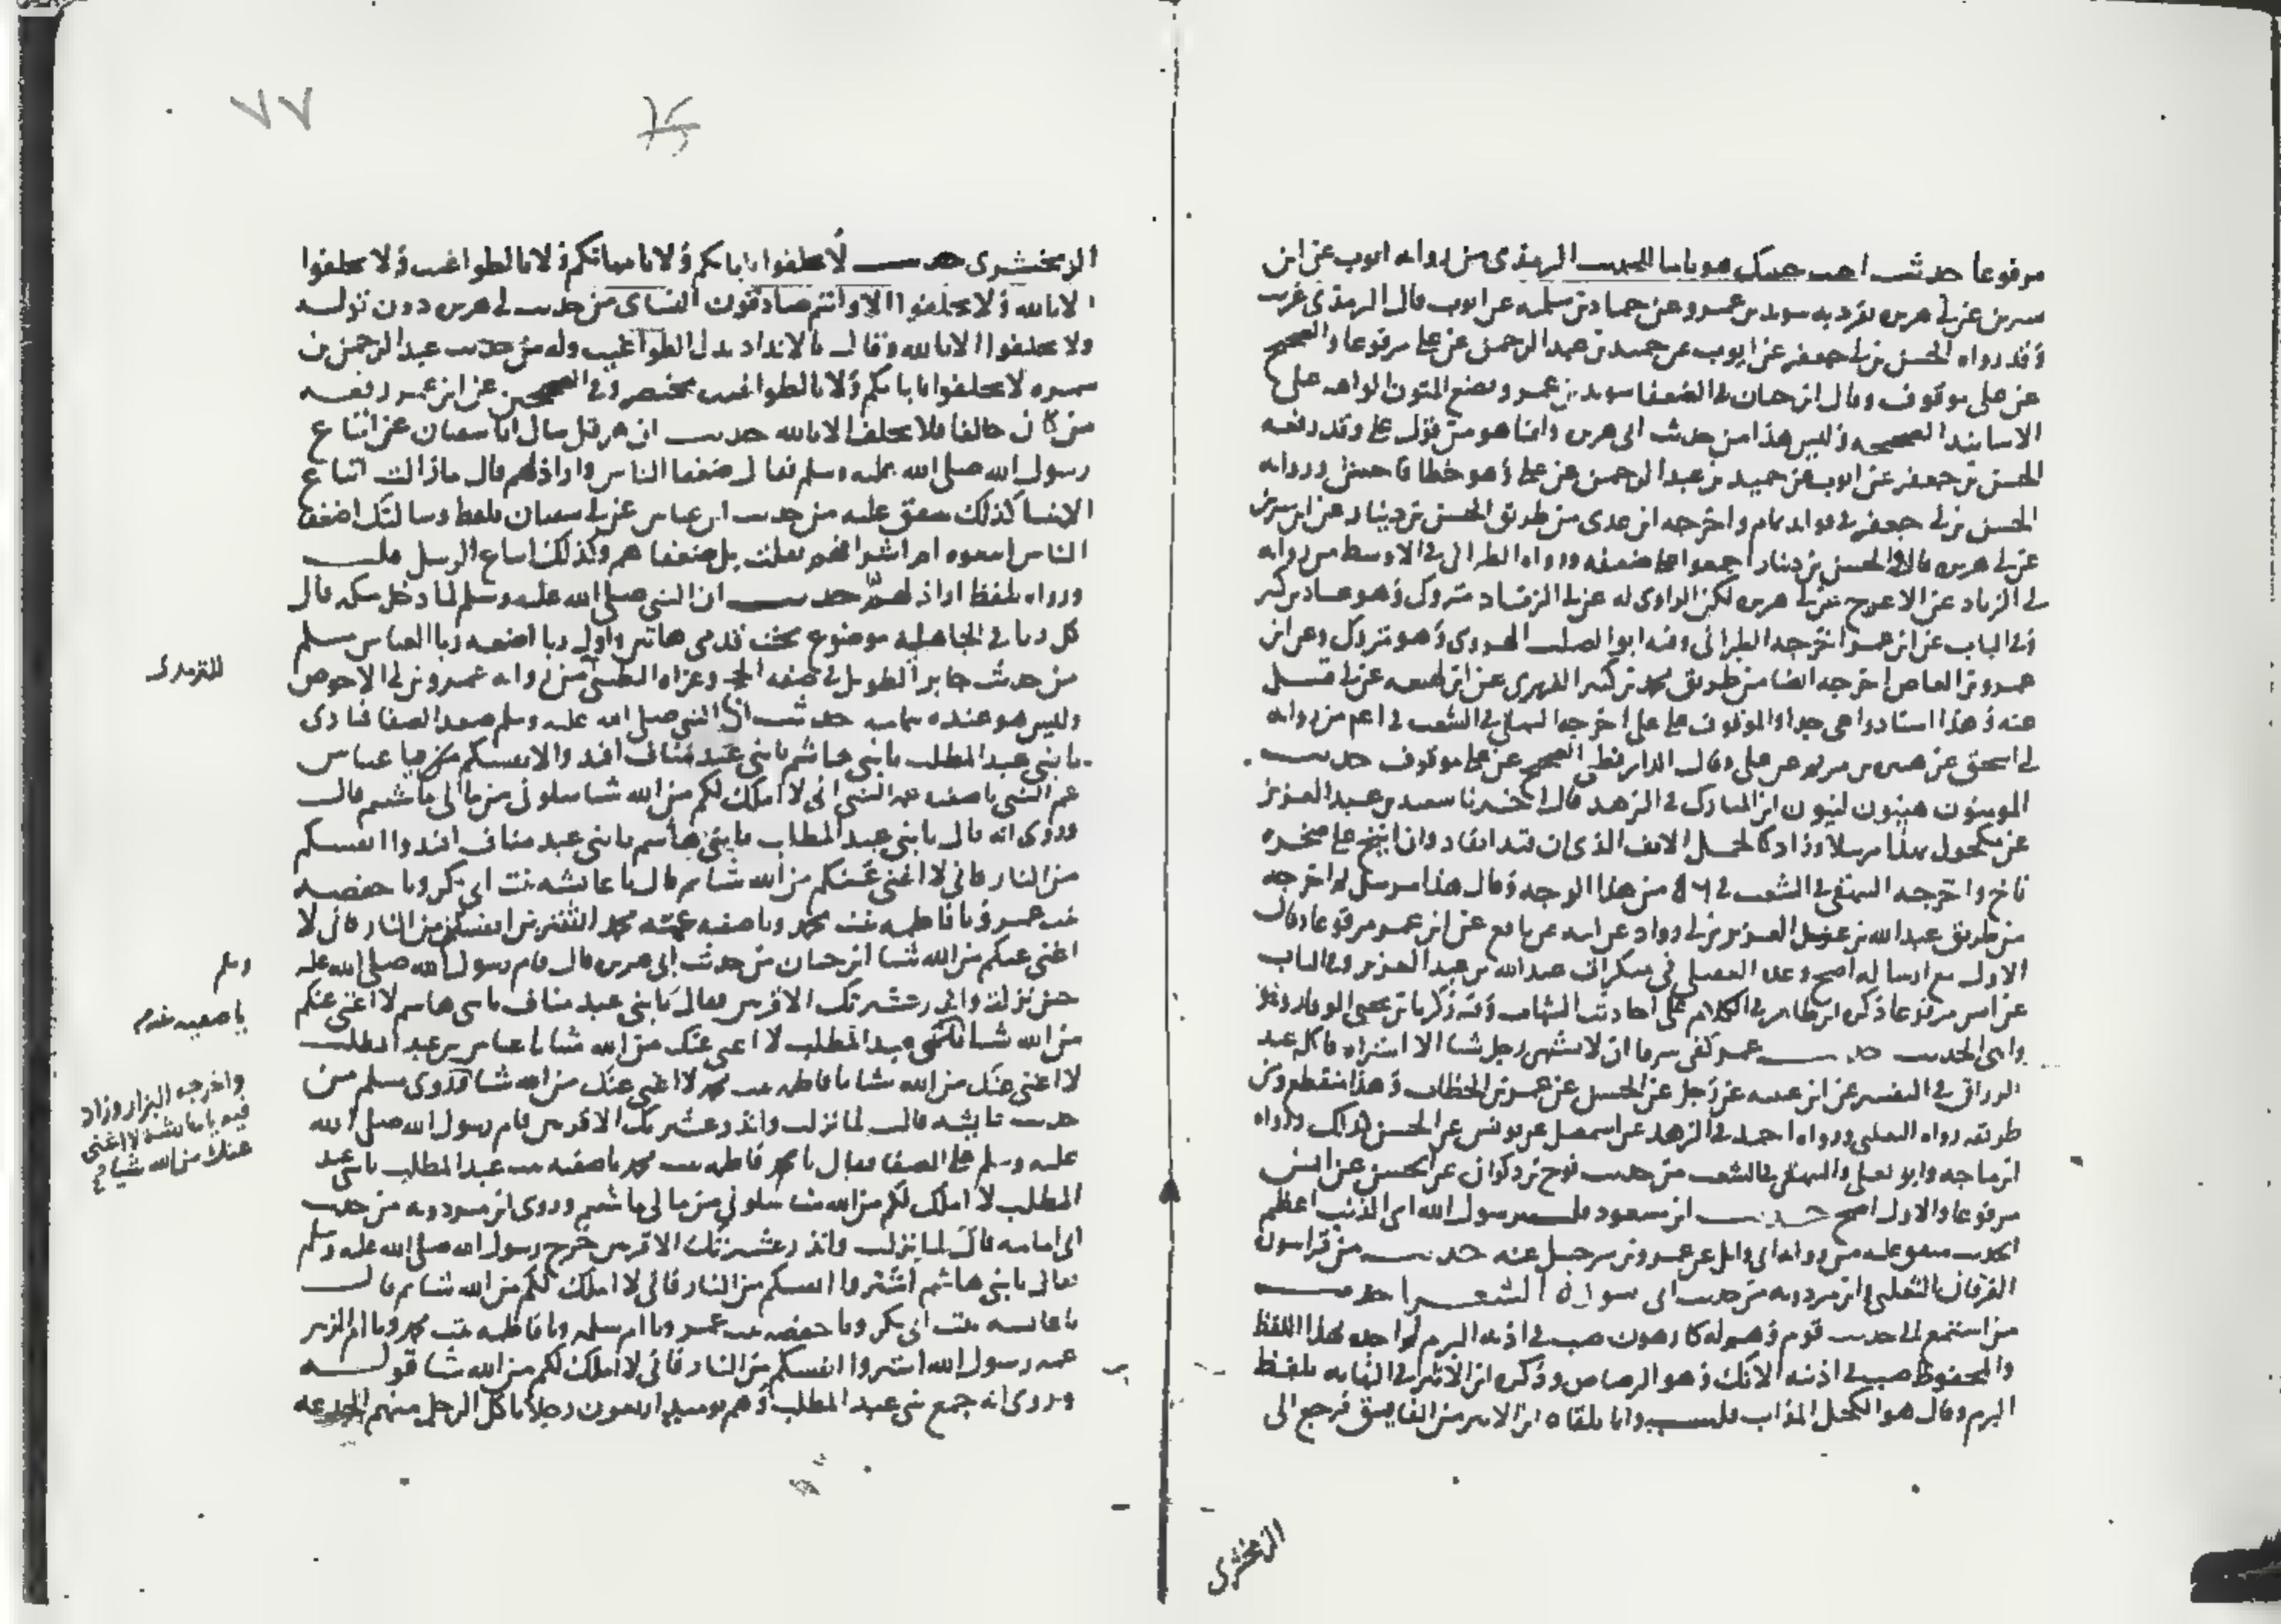 مرفوعا حديث احبب حبيبك هونا ما الحديث الترمذى من رواية ايوب عن ابن
سيرين عن ابى هريرة تفرد به سويد بن عمرو عن حماد بن سلمة عن ايوب قال الترمذى غريب
وقد رواه الحسن بن ابى جعفر عن ايوب عن حميد بن عبد الرحمن عن على مرفوعا والصحيح
عن على موقوف وقال ابن حبان فى الضعفا سويد بن عمرو يضع المتون الواهية على
الاسانيد الصحيحة وليس هذا من حديث ابى هريرة وانما هو من قول على وقد رفعه
الحسن بن جعفر عن ايوب عن حميد بن عبد الرحمن عن على وهو خطا فاحش ورواية
الحسن بن ابى جعفر فى فوائد تمام واخرجه ابن عدى من طريق الحسن بن دينار عن ابن سيرين
عن ابى هريرة قال والحسن بن دينار اجمعوا على ضعفه ورواه الطبرانى فى الاوسط من رواية
ابى الزناد عن الاعرج عن ابى هريرة لكن الراوى له عن ابى الزناد متروك وهو عباد بن كثير
وفى الباب عن ابن عمر اخرجه الطبرانى وفيه ابو الصلت الهروى وهو متروك وعن ابن
عمرو بن العاص اخرجه ايضا من طريق محمد بن كثير الفهرى عن ابن لهيعة عن ابى قبيل
عنه وهذا اسناد واهى جدا والموقوف على على اخرجه البيهقى فى الشعب من رواية
ابى اسحق عن هبيرة بن مريم عن على وقال الدارقطنى الصحيح عن على موقوف حديث
المومنون هينون لينون ابن المبارك فى الزهد قال اخبرنا سعيد بن عبد العزيز
عن مكحول بهذا مرسلا وزاد كالجمل الانف الذى ان قيد انقاد وان انيخ على صخرة
ناخ واخرجه البيهقى فى الشعب من هذا الوجه وقال هذا مرسل ثم اخرجه
من طريق عبد الله بن عبد العزيز بن ابى رواد عن ابيه عن نافع عن ابن عمر مرفوعا وقال
الاول مع ارساله اصح وعده العقيلى فى منكرات عبد الله بن عبد العزيز وفى الباب
عن انس مرفوعا ذكره ابن طاهر فى الكلام على احاديث الشهاب وفيه زكريا بن يحيى الوقار وهو
واهى الحديث حديث عمر كفى سرفا ان لا يشتهى رجل شيا الا اشتراه فاكله عبد
الرزاق فى التفسير عن ابن عيينة عن رجل عن الحسن عن عمر بن الخطاب وهذا منقطع ومن
طريقه رواه الثعلبى ورواه احمد فى الزهد عن اسمعيل عن يونس عن الحسن كذلك ورواه
ابن ماجه وابو يعلى والبيهقى فى الشعب من حديث نوح بن ذكوان عن الحسن عن انس
مرفوعا والاول اصح حديث ابن مسعود قلت يرسول الله اى الذنب اعظم
الحديث متفق عليه من رواية ابى وائل عن عمرو بن شرحبيل عنه حديث من قرا سورة
الفرقان الثعلبى وابن مردويه من حديث ابى سورة الشعرا حديث
من استمع الى حديث قوم وهم له كارهون صب فى اذنيه البرم لم اجده بهذا اللفظ
والمحفوظ صب فى اذنيه الانك وهو الرصاص وذكره ابن الاثير فى النهاية بلفظ
البرم وقال هو الكحل المذاب قلت وانما تلقاه ابن الاثير من الفايق فرجع الى
الزمخشرى
الزمخشرى حديث لا تحلفوا بابايكم ولا بامهاتكم ولا بالطواغيت ولا تحلفوا
الا بالله ولا تحلفوا الا وانتم صادقون النساى من حديث ابى هريرة دون قوله
ولا تحلفوا الا بالله وقال بالانداد بدل الطواغيت وله من حديث عبد الرحمن بن
سمرة لا تحلفوا بابايكم ولا بالطواغيت مختصر وفى الصحيحين عن ابن عمر رفعه
من كان حالفا فلا يحلف الا بالله حديث ان هرقل سال ابا سفيان عن اتباع
رسول الله صلى الله عليه وسلم فقال ضعفا الناس واراذلهم قال مازالت اتباع
الانبيا كذلك متفق عليه من حديث ابن عباس عن ابى سفيان بلفظ وسالتك اضعفا
الناس اتبعوه ام اشرافهم فقلت بل ضعفاهم وكذلك اتباع الرسل قلت
ورواه بلفظ اراذلهم حديث ان النبى صلى الله عليه وسلم لما دخل مكة قال
كل ربا فى الجاهلية موضوع تحت قدمى هاتين واول ربا اضعه ربا العباس مسلم
من حديث جابر الطويل فى صفة الحج وعزاه الطيبى من رواية عمرو بن ابى الاحوص
للترمذى
وليس هو عنده بتمامه حديث ان النبى صلى الله عليه وسلم صعد الصفا فنادى
يا بنى عبد المطلب يا بنى هاشم يا بنى عبد مناف افتدوا انفسكم يا عباس
عم النبى يا صفية عمة النبى انى لا املك لكم من الله شيا سلونى من مالى ما شيتم قال
وروى انه قال يا بنى عبد المطلب يا بنى هاشم يا بنى عبد مناف افتدوا انفسكم
من النار فانى لا اغنى عنكم من الله شيا ثم قال يا عايشة بنت ابى بكر ويا حفصة
بنت عمر ويا فاطمة بنت محمد ويا صفية عمة محمد اشترين انفسكن من النار فانى لا
اغنى عنكم من الله شيا ابن حبان من حديث ابى هريرة قال قام رسول الله صلى الله عليه
وسلم
حين نزلت وانذر عشيرتك الاقربين فقال يا بنى عبد مناف يا بنى هاشم لا اغنى عنكم
من الله شيا يا بنى عبد المطلب لا اغنى عنك من الله شيا يا عباس بن عبد المطلب
يا صفية عمة
لا اغنى عنك من الله شيا يا فاطمة بنت محمد لا اغنى عنك من الله شيا وروى مسلم من
واخرجه البزار وزاد
فيه يا عايشة لا اغنى
عنك من الله شيا
حديث عايشة قالت لما نزلت وانذر عشيرتك الاقربين قام رسول الله صلى الله
عليه وسلم على الصفا فقال يا فاطمة بنت محمد يا صفية بنت عبد المطلب يا بنى عبد
المطلب لا املك لكم من الله شيا سلونى من مالى ما شيتم وروى ابن مردويه من حديث
ابى امامة قال لما نزلت وانذر عشيرتك الاقربين خرج رسول الله صلى الله عليه وسلم
فقال يا بنى هاشم اشتروا انفسكم من النار فانى لا املك لكم من الله شيا ثم قال
يا عايشة بنت ابى بكر ويا حفصة بنت عمر ويا ام سلمة ويا فاطمة بنت محمد ويا ام الزبير
عمة رسول الله اشتروا انفسكم من النار فانى لا املك لكم من الله شيا قوله
وروى انه جمع بنى عبد المطلب وهم يوميذ اربعون رجلا ياكل الرجل منهم الجذعة
٧٧